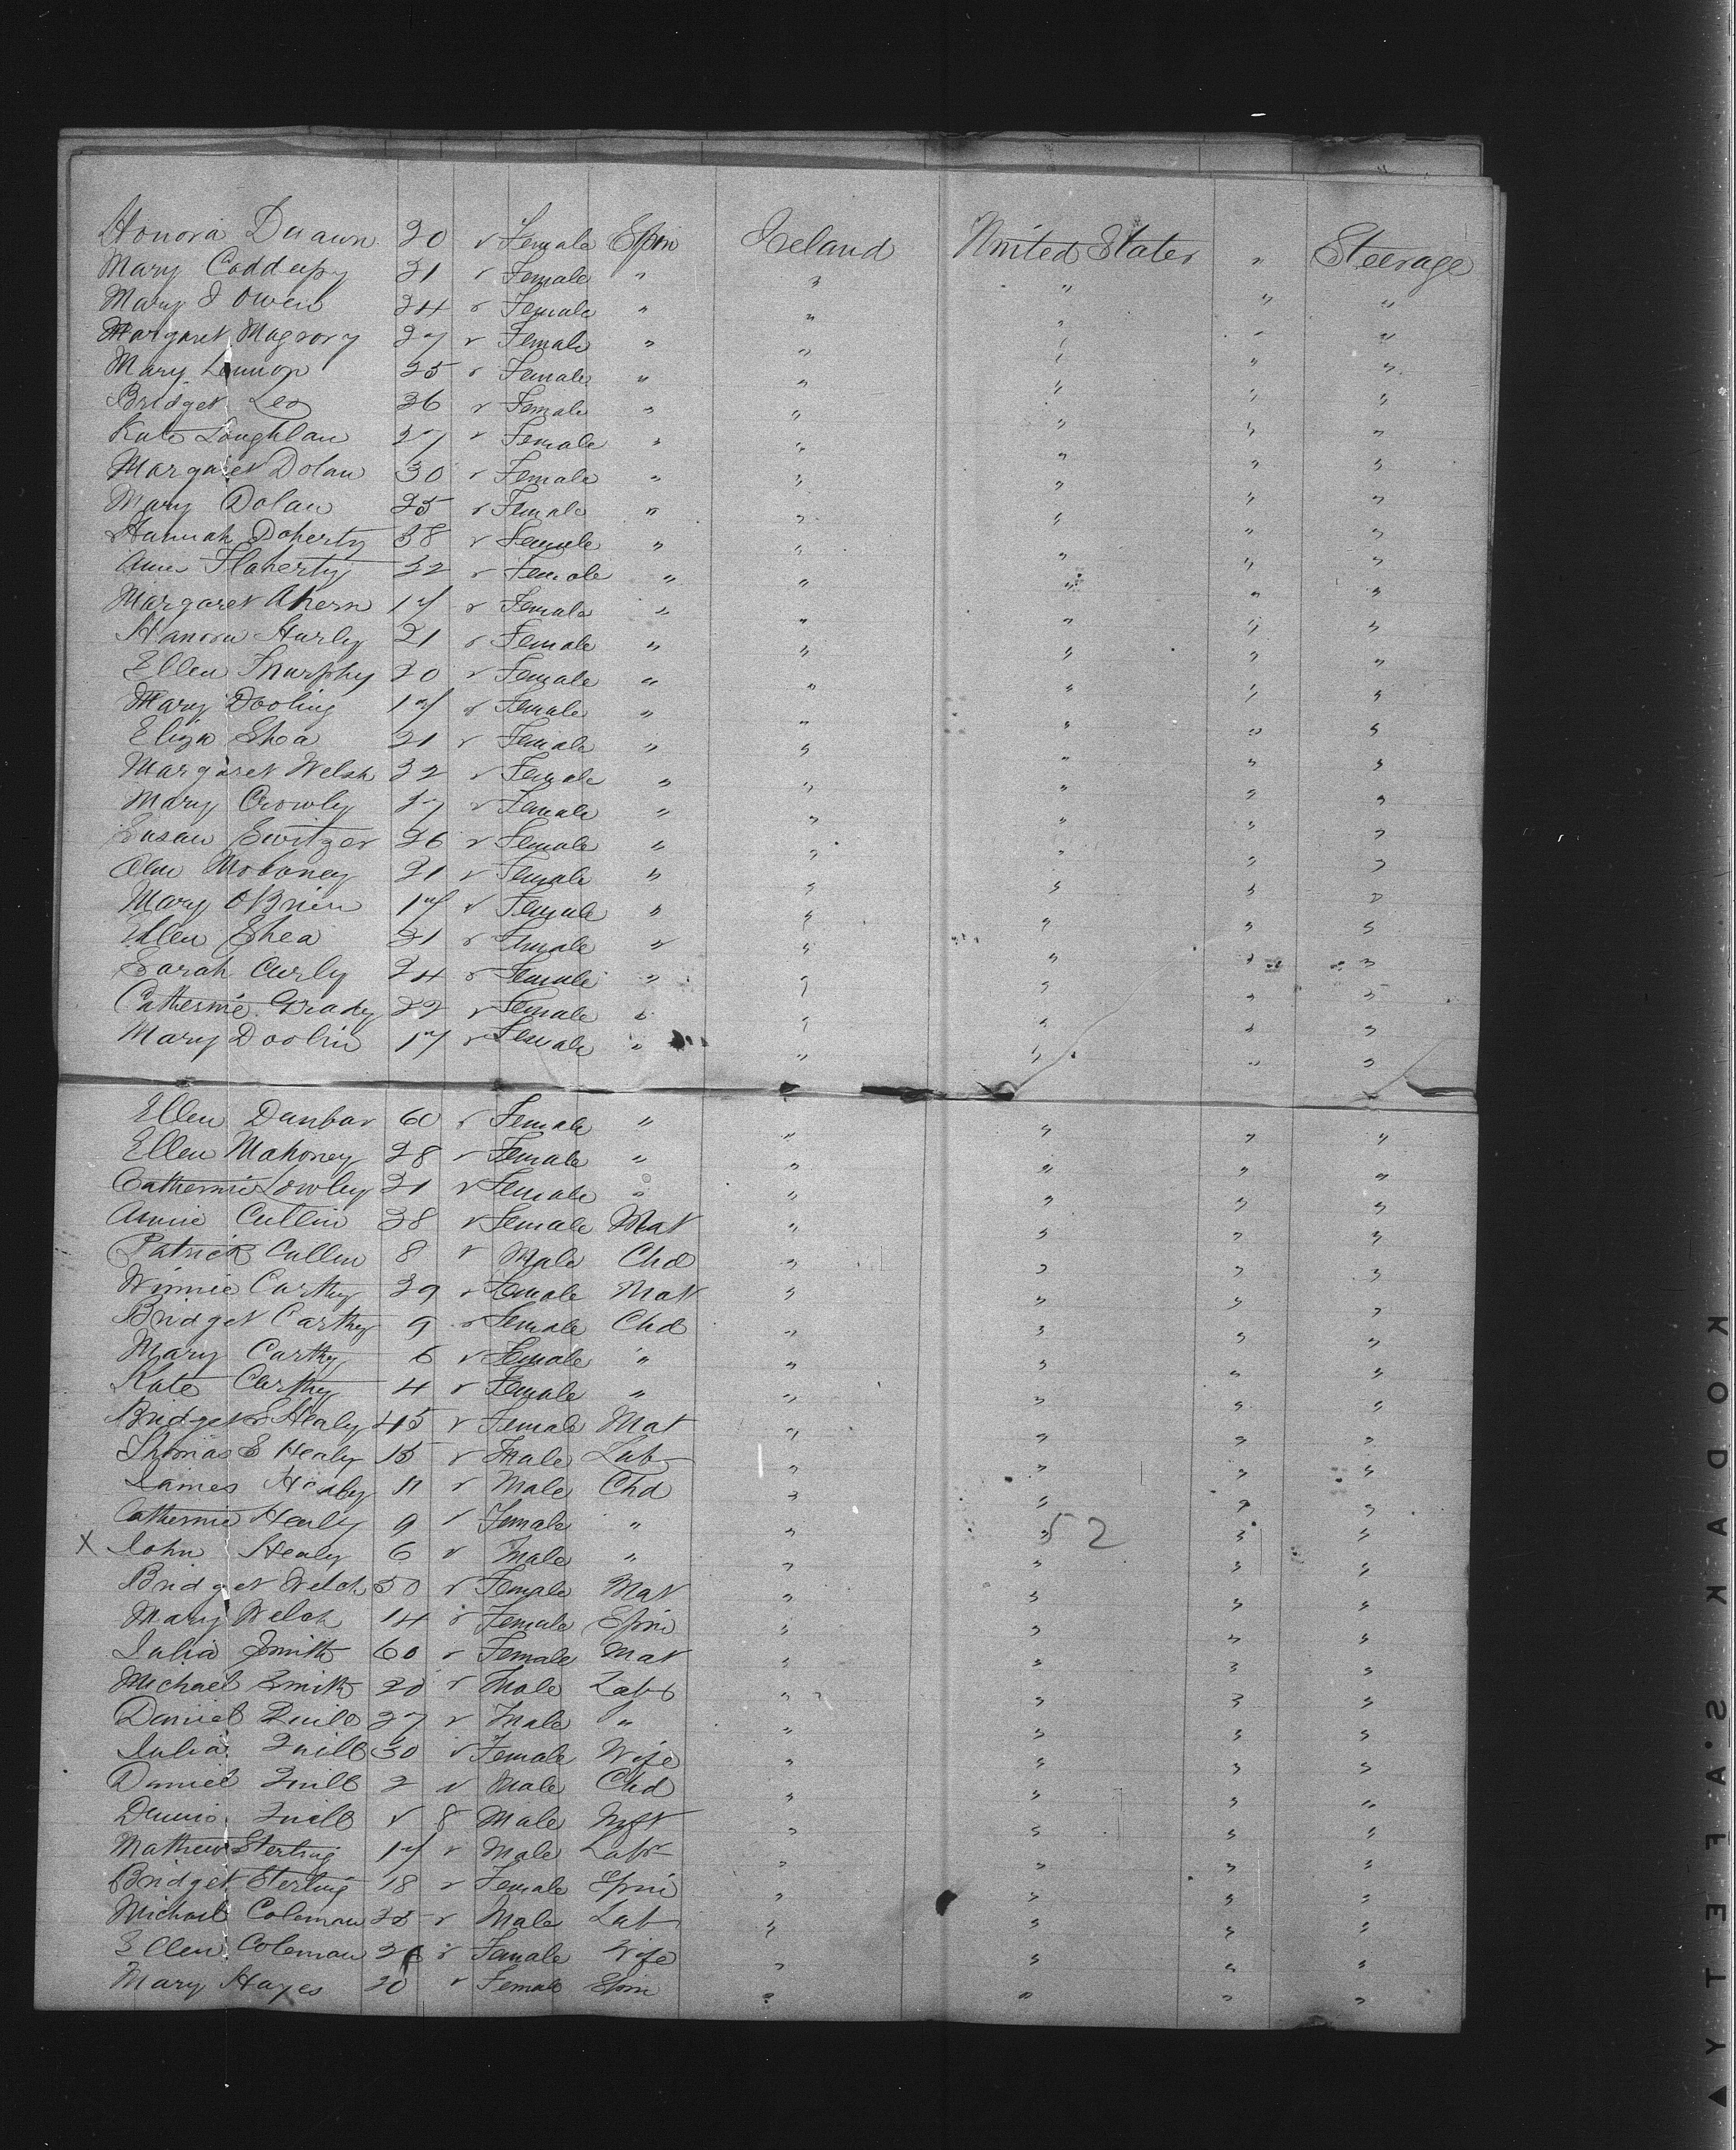 Honora Duawn 20 √ Female Spin Ireland United States " Steerage
Mary Coddeepy 21 √ Female " " " " "
Mary J Owen 24 √ Female " " " " "
Margaret Magrory 27 √ Female " " " " "
Mary Lennon 25 √ Female " " " " "
Bridget Leo 26 √ Female " " " " "
Kate Loughlan 27 √ Female " " " " "
Margaret Dolan 30 √ Female " " " " "
Mary Dolan 25 √ Female " " " " "
Hannah Doherty 38 √ Female " " " " "
Anne Flaherty 32 √ Female " " " " "
Margaret Ahern 17 √ Female " " " " "
Hanora Hurly 21 √ Female " " " " "
Ellen Murphy 20 √ Female " " " " "
Mary Dooling 17 √ Female " " " " "
Eliza Shea 21 √ Female " " " " "
Margaret Welsh 22 √ Female " " " " "
Mary Crowley 27 √ Female " " " " "
Susan Switzer 26 √ Female " " " " "
Ann Moloney 21 √ Female " " " " "
Mary OBrien 17 √ Female " " " " "
Ellen Shea 21 √ Female " " " " "
Sarah Curly 24 √ Female " " " " "
Catherine Grady 22 √ Female " " " " "
Mary Doolin 17 √ Female " " " " "
Ellen Dunbar 60 √ Female " " " " "
Ellen Mahoney 28 √ Female " " " " "
Catherine Lowley 21 √ Female " " " " "
Annie Cullin 38 √ Female Mat " " " "
Patrick Cullen 8 √ Male Chd " " " "
Winnie Carthy 29 √ Female Mat " " " "
Bridget Carthy 9 √ Female Chd " " " "
Mary Carthy 6 √ Female " " " " "
Kate Carthy 4 √ Female " " " " "
Bridget Healy 45 √ Female Mat " " " "
Thomas E Healy 15 √ Male Lab " " " "
James Healy 11 √ Male Chd " " " "
Catherine Healy 9 √ Female " " " 52 " "
X John Healy 6 √ Male " " " " "
Bridget Welch 50 √ Female Mat " " " "
Mary Welch 14 √ Female Spin " " " "
Julia Smith 60 √ Female Mat " " " "
Michael Smith 20 √ Male Lab " " " "
Daniel Quill 27 √ Male " " " " "
Julia Quill 30 √ Female Wife " " " "
Daniel Quill 2 √ Male Chd " " " "
Dennis Quill √ 8 Male Inft " " " "
Mathew Sterling 17 √ Male Labr " " " "
Bridget Sterling 18 √ Female Spin " " " "
Michael Coleman 25 √ Male Lab " " " "
Ellen Coleman √ Female Wife " " " "
Mary Hayes 20 √ Female Spin " " " "
KODAK·SAFETY▲